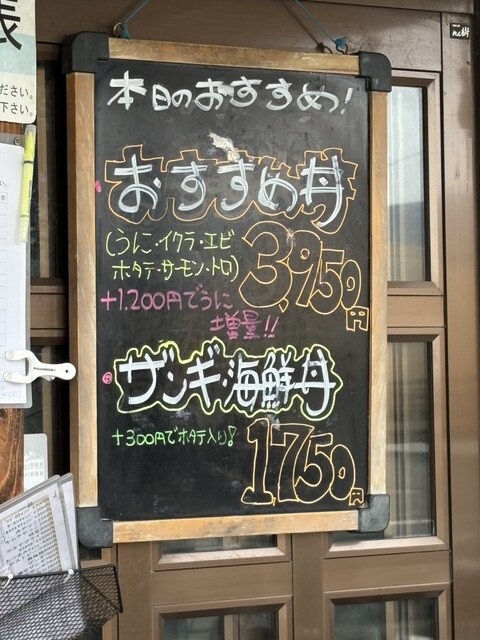 本日のおすすめ!
おすすめ丼
(うに・イクラ・エビ
ホタテ・サーモン・トロ)
3,950円
+1,200円でうに
増量!!
ザンギ・海鮮丼
+300円でホタテ入り!
1750円
ださい。
下さい。